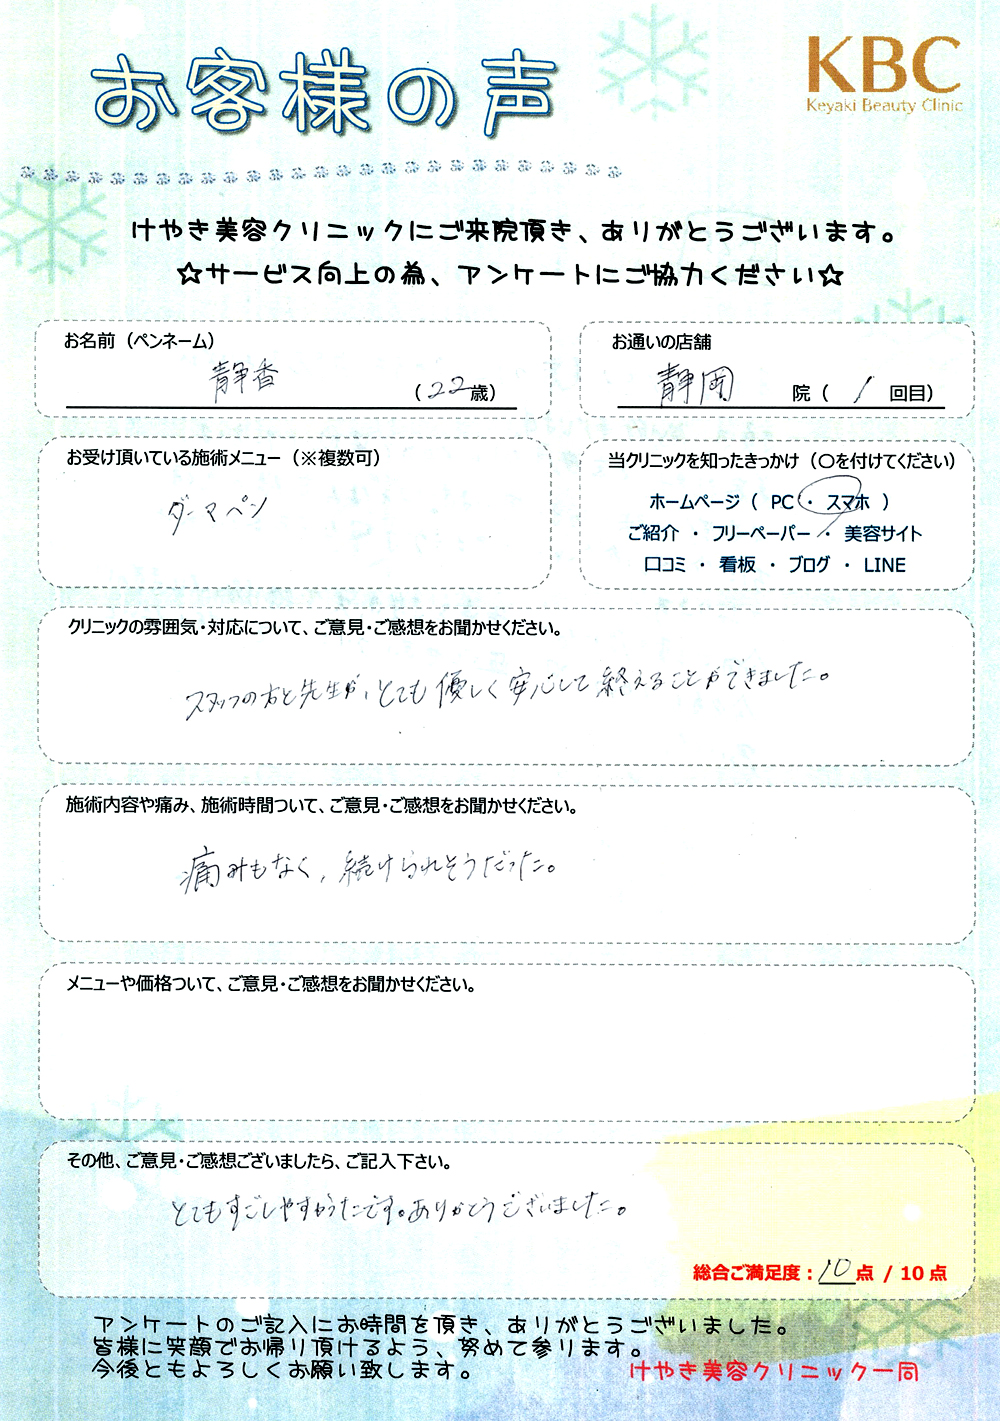 お客様の声
KBC
Keyaki Beauty Clinic
けやき美容クリニックにご来院頂き、ありがとうございます。
☆サービス向上の為、アンケートにご協力ください☆
お名前（ペンネーム）
静香
（22歳）
お通いの店舗
静岡 院（ 1 回目）
お受け頂いている施術メニュー（※複数可）
ダーマペン
当クリニックを知ったきっかけ（〇を付けてください）
ホームページ（ PC ・ スマホ ）
ご紹介 ・ フリーペーパー ・ 美容サイト
口コミ ・ 看板 ・ ブログ ・ LINE
クリニックの雰囲気・対応について、ご意見・ご感想をお聞かせください。
スタッフの方と先生が、とても優しく安心して終えることができました。
施術内容や痛み、施術時間ついて、ご意見・ご感想をお聞かせください。
痛みもなく、続けられそうだった。
メニューや価格ついて、ご意見・ご感想をお聞かせください。
その他、ご意見・ご感想ございましたら、ご記入下さい。
とてもすごしやすかったです。ありがとうございました。
総合ご満足度：10点 / 10点
アンケートのご記入にお時間を頂き、ありがとうございました。
皆様に笑顔でお帰り頂けるよう、努めて参ります。
今後ともよろしくお願い致します。
けやき美容クリニック一同